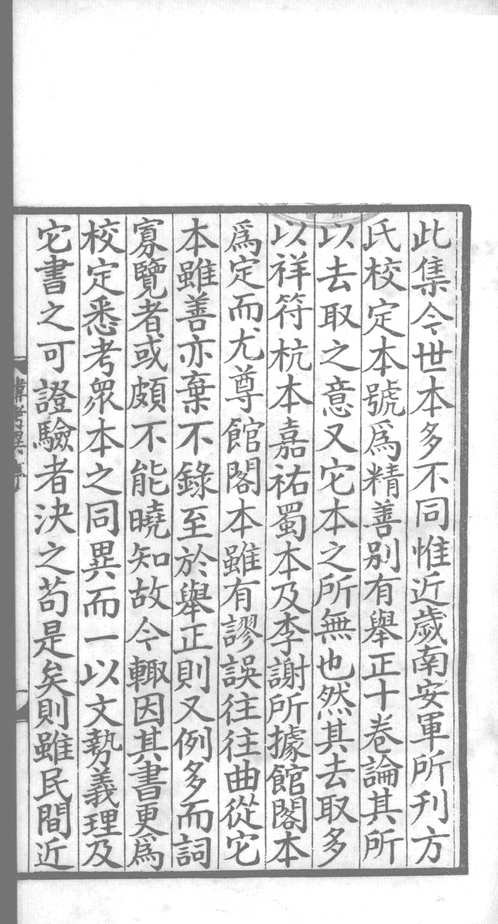 此集今世本多不同惟近歲南安軍所刊方
氏校定本號爲精善別有舉正十卷論其所
以去取之意又它本之所無也然其去取多
以祥符杭本嘉祐蜀本及李謝所據館閣本
爲定而尤尊館閣本雖有謬誤往往曲從它
本雖善亦棄不錄至於舉正則又例多而詞
寡覽者或頗不能曉知故今輒因其書更爲
校定悉考衆本之同異而一以文勢義理及
它書之可證驗者決之苟是矣則雖民間近
韓考異序
一